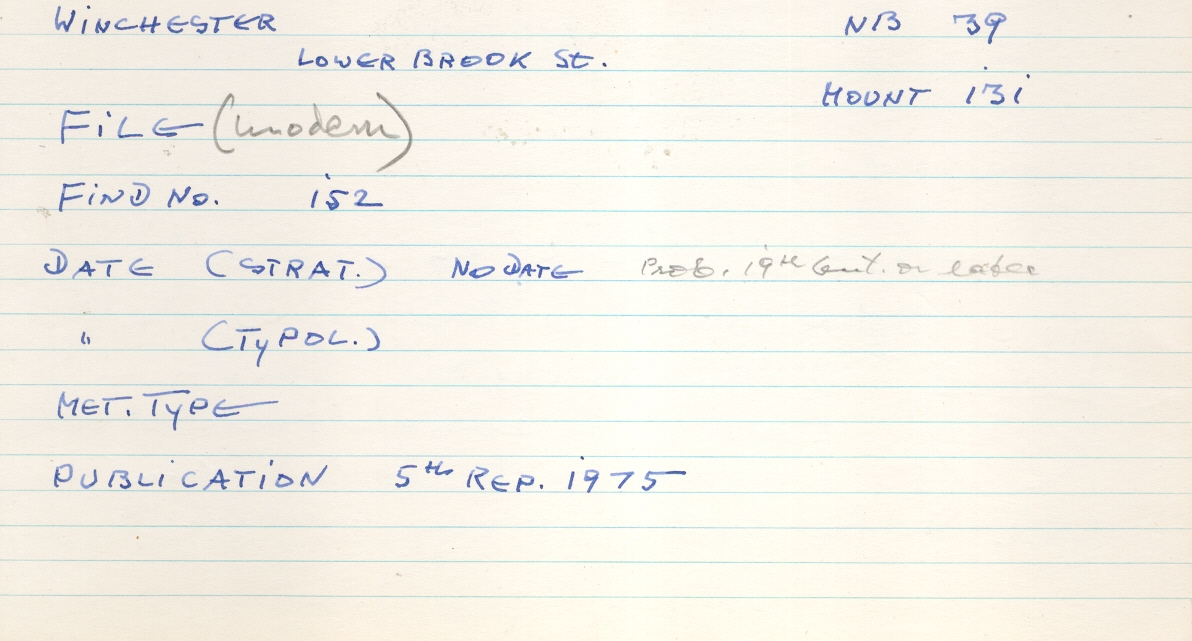 WINCHESTER NB 39
LOWER BROOK St.
MOUNT 131
FILE (modern)
FIND No. 152
DATE (STRAT.) NO DATE Prob. 19th Cent. or later
" (TYPOL.)
MET. TYPE
PUBLICATION 5th REP. 1975